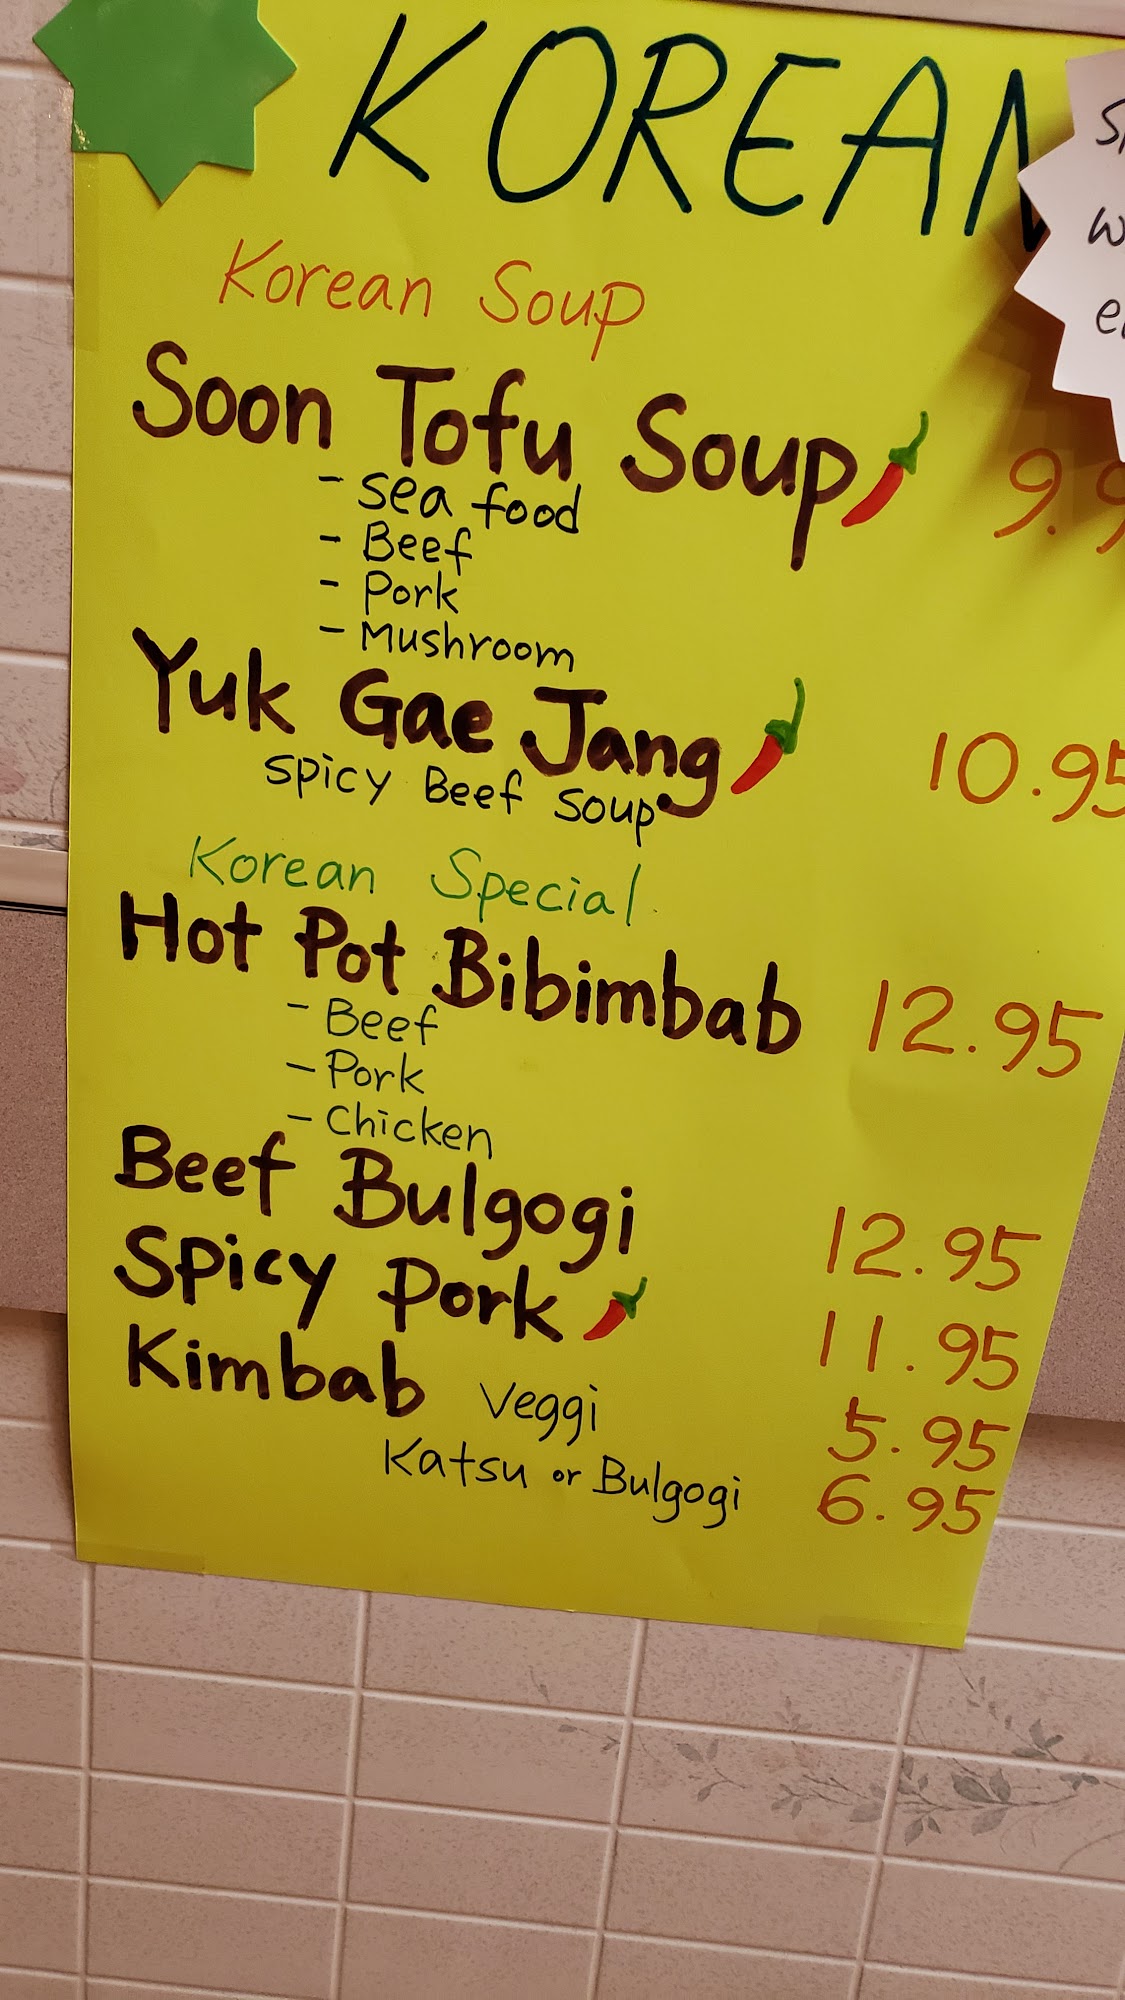 KOREAN
Korean Soup
Soon Tofu Soup
- sea food
- Beef
- Pork
- Mushroom
Yuk Gae Jang 10.95
spicy Beef Soup
Korean Special
Hot Pot Bibimbab 12.95
- Beef
- Pork
- Chicken
Beef Bulgogi 12.95
Spicy Pork 11.95
Kimbab Veggi 5.95
Katsu or Bulgogi 6.95